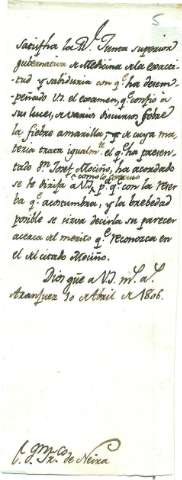 5
Satisfha la Rl. Junta superior
gubernativa de Medicina de la exacti-
tud y sabiduria con qe. ha desem-
peñado VS. el examen, qe. confió a
sus luces, de varios discursos sobre
la fiebre amarilla; y de cuya ma-
teria trata igualmte. el qe. ha presen-
tado Dn. Josef Mociño, ha acordado
se le dirija a VS. como lo executo pa. qe. con la reser-
va qe. acostumbra, y la brebedad
posible se sirva decirla su parecer
acerca del merito qe. reconozca en
el del citado Mociño.
Dios gue. a VS. ms. as.
Aranjuez 10 de Abril de 1806.
de Neira